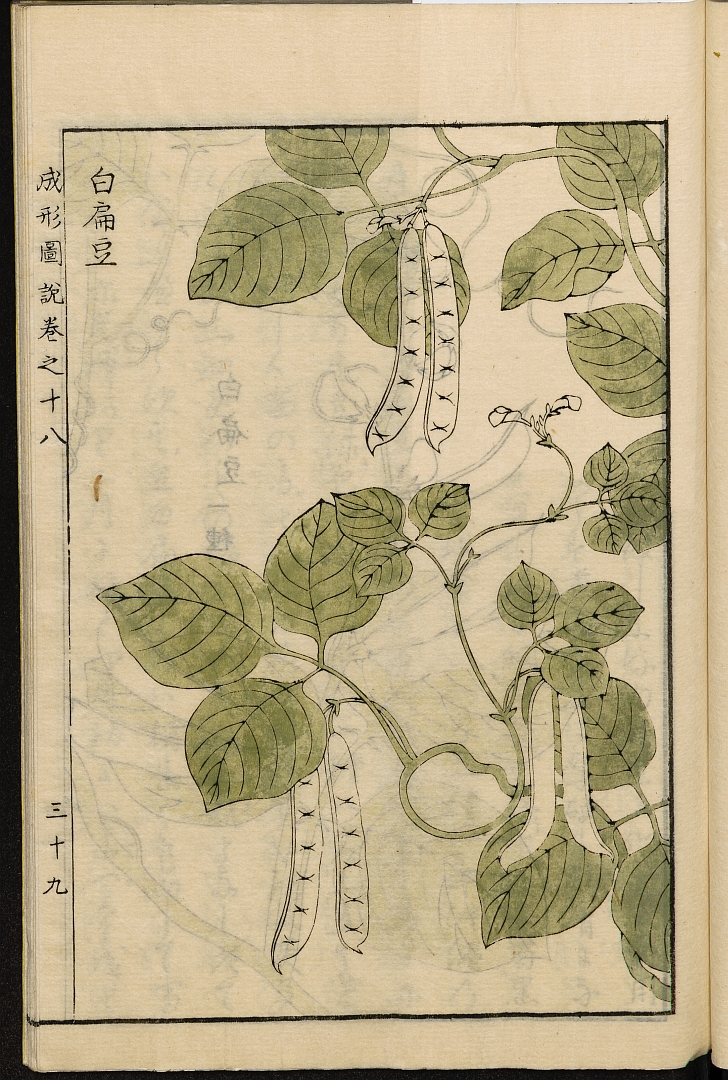 白扁豆
成形圖說卷之十八
三十九